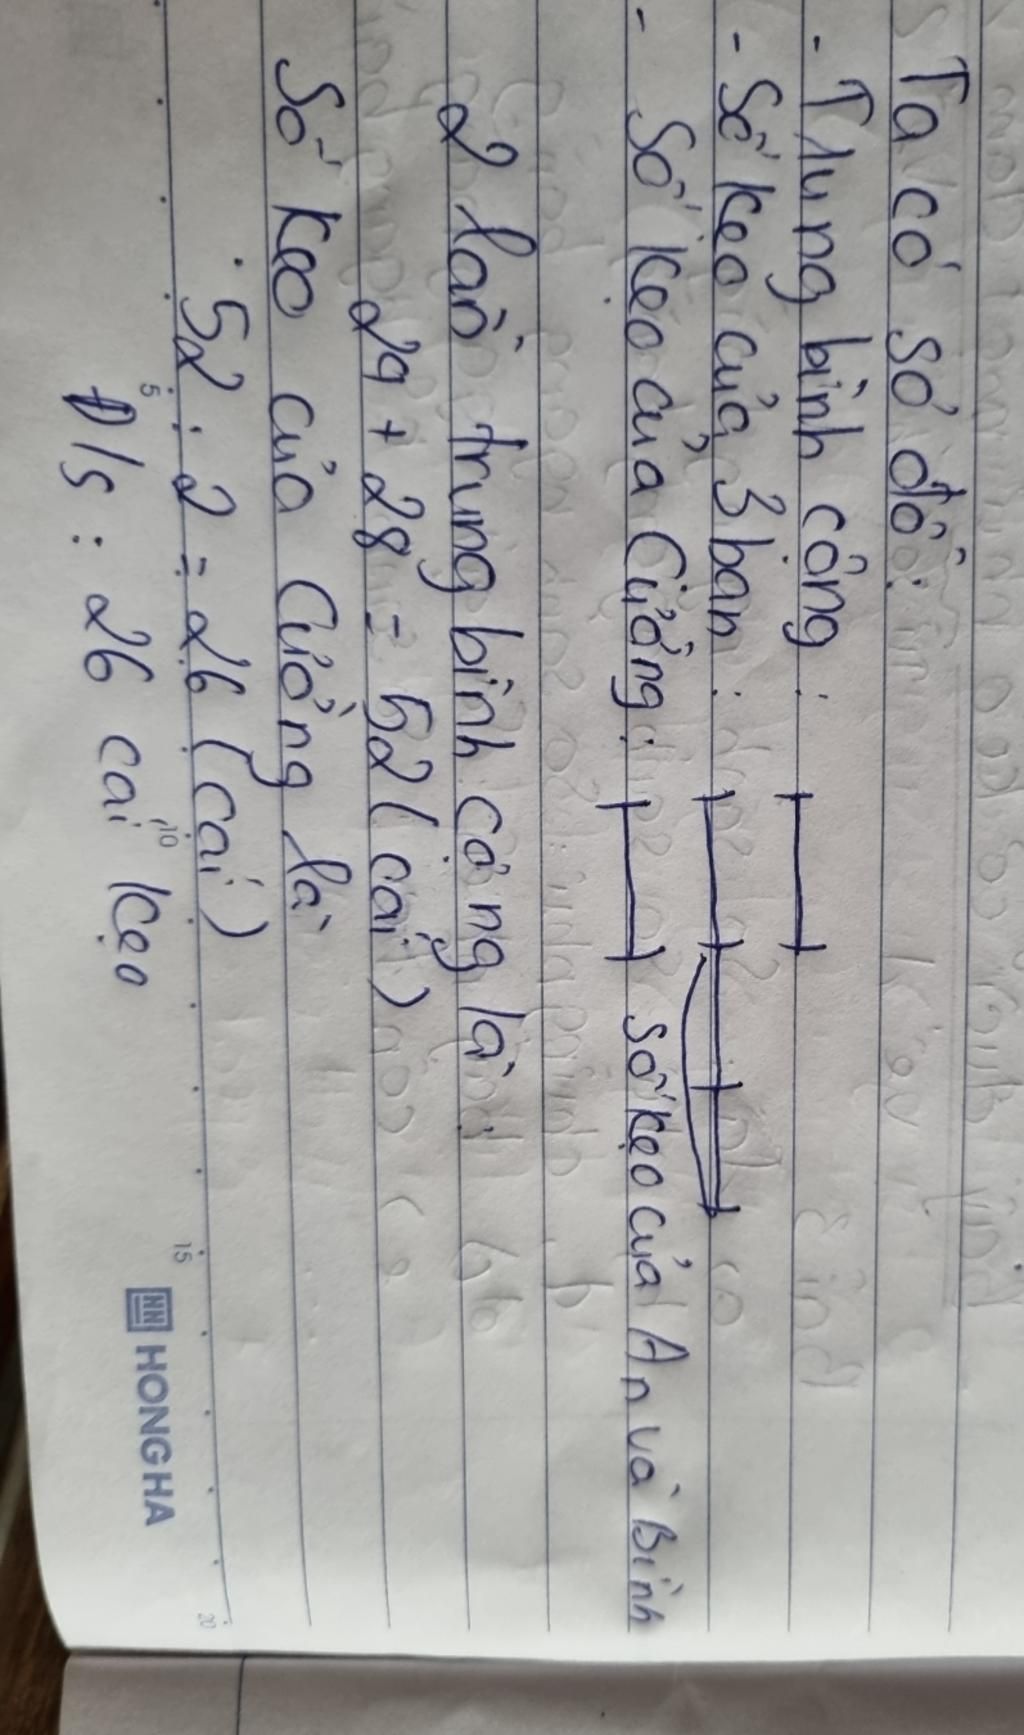 Ta có sơ đồ:
- Trung bình cộng:
- Số kẹo của 3 bạn:
- Số kẹo của Cường:
Số kẹo của An và Bình
2 lần trung bình cộng là
24 + 28 = 52 (cái)
Số kẹo của Cường là
52 : 2 = 26 (cái)
Đ/S: 26 cái kẹo
5 10 15 20
HH HONG HA